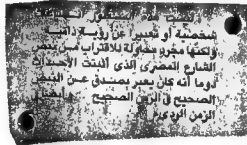 ليست هذه السطور
شخصية أو تعبير عن رؤية ذاتية
ولكنها مجرد محاولة للاقتراب من نبض
الشارع المصرى الذى أثبتت الأحداث
دوما أنه كان يعبر بصدق عن النبض
الصحيح فى الزمن الصحيح
الزمن الردىء